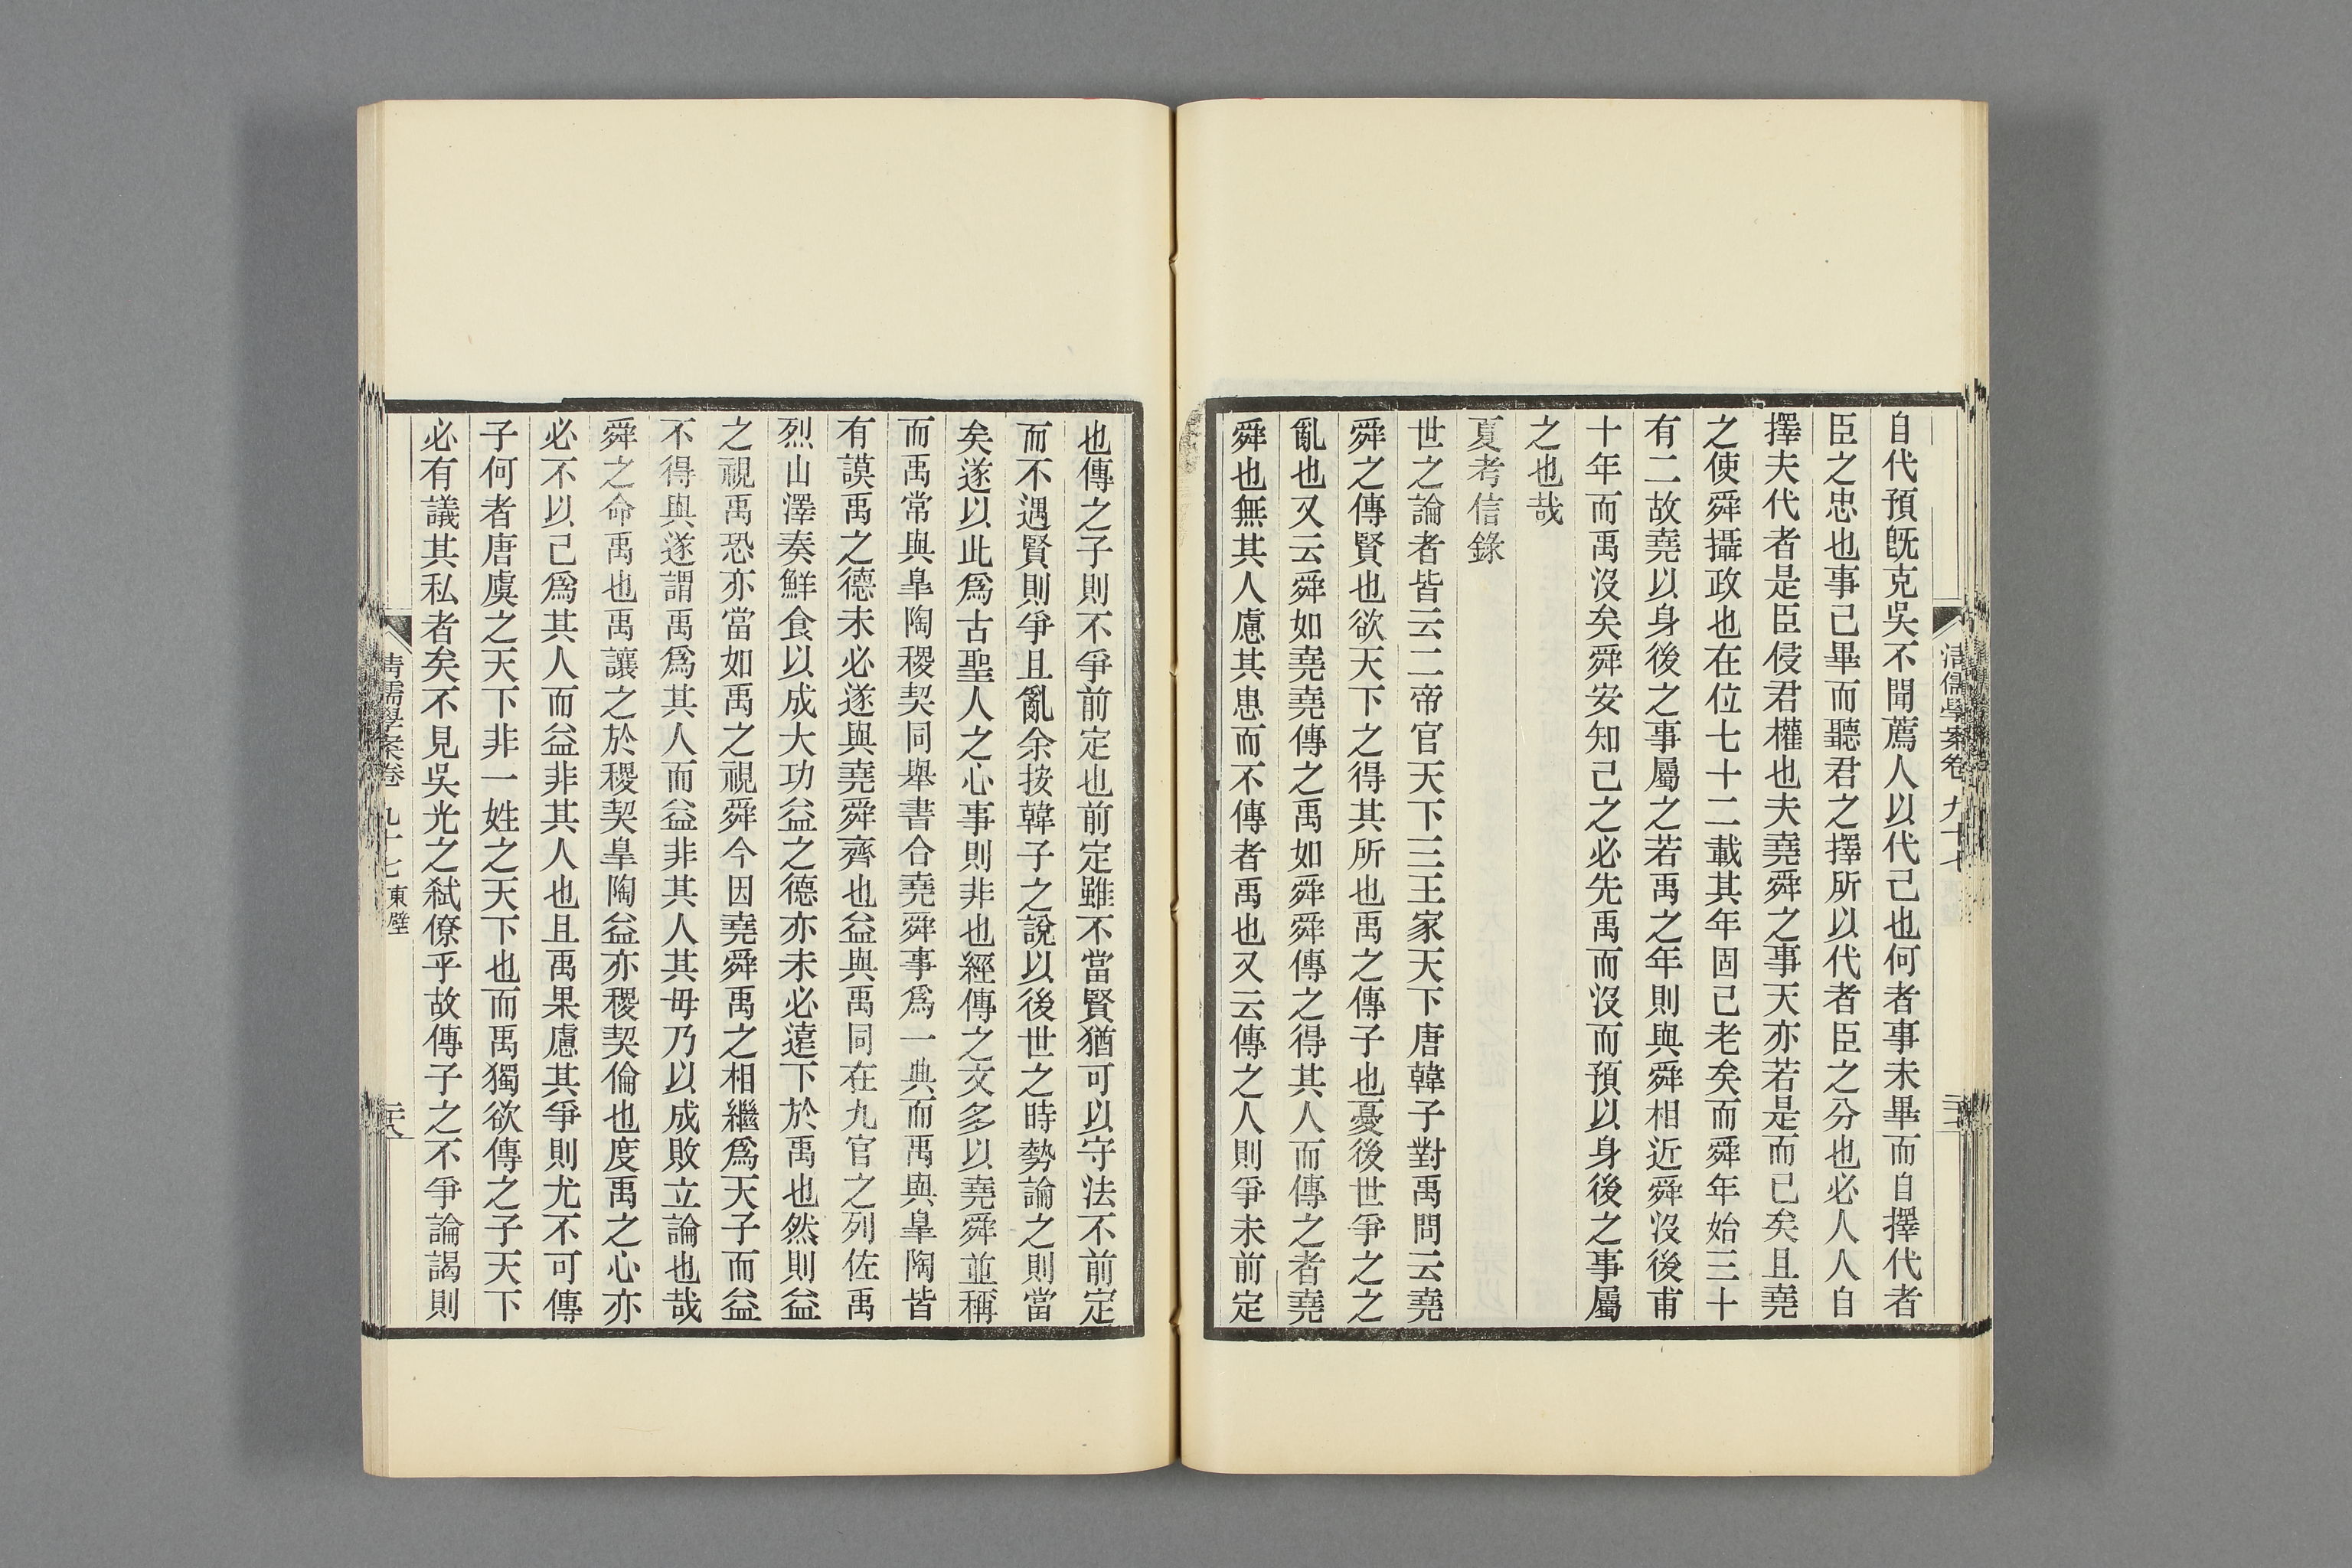 自代預既克吳不聞薦人以代己也何者事未畢而自擇代者
臣之忠也事已畢而聽君之擇所以代者臣之分也必人人自
擇夫代者是臣侵君權也夫堯舜之事天亦若是而已矣且堯
之使舜攝政也在位七十二載其年固已老矣而舜年始三十
有二故堯以身後之事屬之若禹之年則與舜相近舜沒後甫
十年而禹沒矣舜安知己之必先禹而沒而預以身後之事屬
之也哉
夏考信錄
世之論者皆云二帝官天下三王家天下唐韓子對禹問云堯
舜之傳賢也欲天下之得其所也禹之傳子也憂後世爭之之
亂也又云舜如堯堯傳之禹如舜舜傳之得其人而傳之者堯
舜也無其人慮其患而不傳者禹也又云傳之人則爭未前定
也傳之子則不爭前定也前定雖不當賢猶可以守法不前定
而不遇賢則爭且亂余按韓子之說以後世之時勢論之則當
矣遂以此爲古聖人之心事則非也經傳之文多以堯舜並稱
而禹常與皋陶稷契同舉書合堯舜事爲一典而禹與皋陶皆
有謨禹之德未必遂與堯舜齊也益與禹同在九官之列佐禹
烈山澤奏鮮食以成大功益之德亦未必遠下於禹也然則益
之視禹恐亦當如禹之視舜今因堯舜禹之相繼爲天子而益
不得與遂謂禹爲其人而益非其人其毋乃以成敗立論也哉
舜之命禹也禹讓之於稷契皋陶益亦稷契倫也度禹之心亦
必不以己爲其人而益非其人也且禹果慮其爭則尤不可傳
子何者唐虞之天下非一姓之天下也而禹獨欲傳之子天下
必有議其私者矣不見吳光之弒僚乎故傳子之不爭論謁則
清儒學案卷九十七 東壁